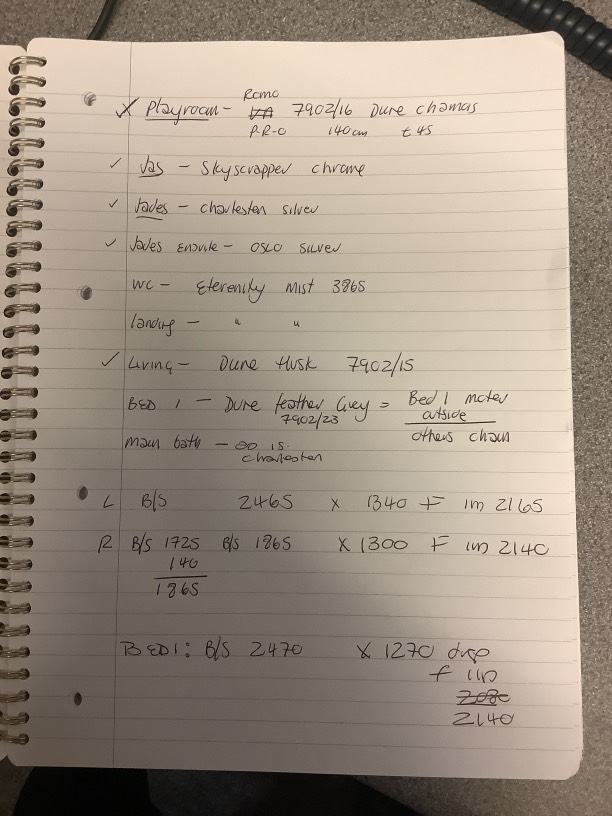 X Playroom - Romo 7902/16 Dune chamas
P-R-O 140cm t 45
✓ Jas - Skyscrapper chrome
✓ Jades - charlesten silver
✓ Jades Ensuite - OSLO SILVER
WC - Eterenity mist 3865
landing - " "
✓ Living - Dune Husk 7902/15
BED 1 - Dune feather Grey = Bed 1 moter
7902/23 outside
main bath - as is. others chain
charlesten
L B/S 2465 x 1340 F 1m 2165
R B/S 1725 B/S 1865 X 1300 F 1m 2140
140
1865
BED1: B/S 2470 X 1270 drop
f
2080
2140